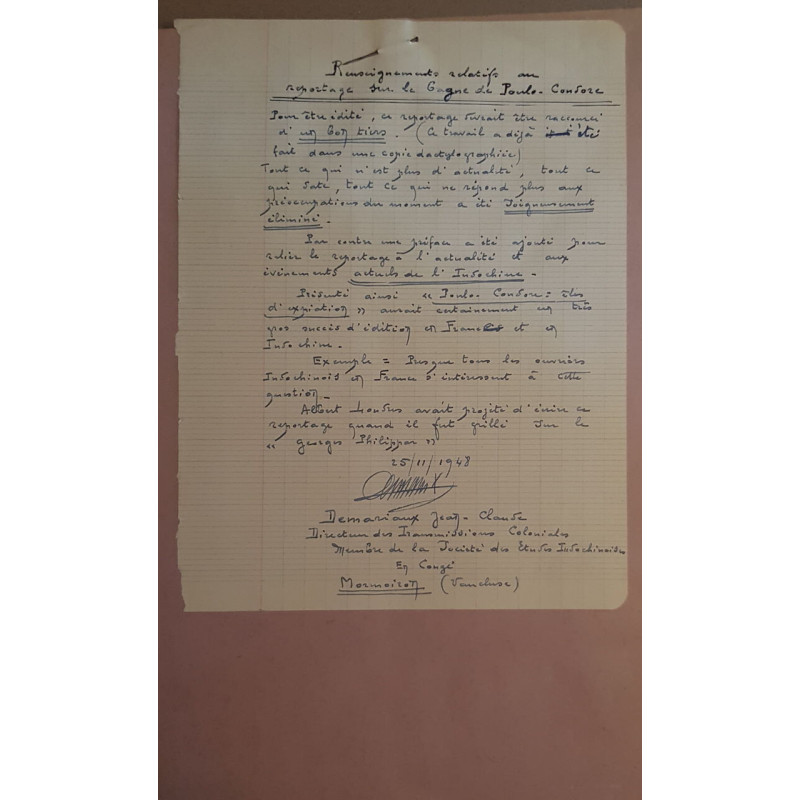 Renseignements relatifs au
reportage sur le Bagne de Poulo-Condore
Pour être édité, ce reportage devrait être raccourci
d'un bon tiers. (Ce travail a déjà été
fait dans une copie dactylographiée)
Tout ce qui n'est plus d'actualité, tout ce
qui date, tout ce qui ne répond plus aux
préoccupations du moment a été soigneusement
éliminé.
Par contre une préface a été ajouté pour
relier le reportage à l'actualité et aux
évènements actuels de l'Indochine.
Présenté ainsi « Poulo-Condore: îles
d'expiation » aurait certainement un très
gros succès d'édition en France et en
Indochine.
Exemple = Presque tous les ouvriers
Indochinois en France s'intéressent à cette
question.
Albert Londres avait projeté d'écrire ce
reportage quand il fut grillé sur le
« Georges Philippar »
25/11/1948
Demariaux Jean-Claude
Directeur des Transmissions Coloniales
Membre de la Société des Études Indochinoises
En Congé
Mormoiron (Vaucluse)